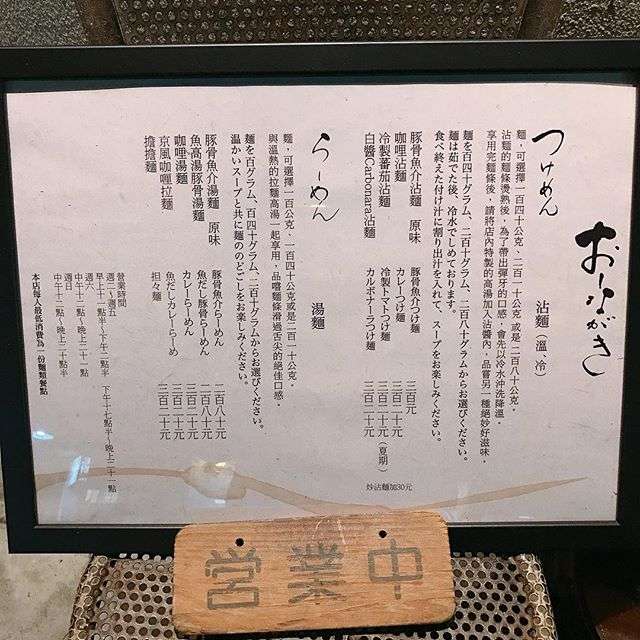 おしながき
つけめん 沾麵（溫、冷）
麵，可選擇一百四十公克，二百一十公克 或是二百八十公克。
沾麵的麵條燙熟後，為了帶出彈牙的口感，會先以冷水沖洗降溫。
享用完麵條後，請將店內特製的高湯加入沾醬內，品嘗另一種絕妙好滋味。
麵を百四十グラム、二百十グラム、二百八十グラムからお選びください。
麵は茹でた後、冷水でしめております。
食べ終えた付け汁に割り出汁を入れて、スープをお楽しみください。
豚骨魚介沾麵 原味 豚骨魚介つけ麵 三百元
咖哩沾麵 カレーつけ麵 三百二十元
冷製蕃茄沾麵 冷製トマトつけ麵 三百二十元（夏期）
白醬Carbonara沾麵 カルボナーラつけ麵 三百二十元
炒沾麵加30元
らーめん 湯麵
麵，可選擇一百公克，一百四十公克或是二百一十公克。
與溫熱的拉麵高湯一起享用，品嚐麵條滑過舌尖的絕佳口感。
麵を百グラム、百四十グラム、二百十グラムからお選びください。
温かいスープと共に麵ののどごしをお楽しみください。
豚骨魚介湯麵 原味 豚骨魚介らーめん 二百八十元
魚高湯豚骨湯麵 魚だし豚骨らーめん 二百八十元
咖哩湯麵 カレーらーめん 三百二十元
京風咖哩拉麵 魚だしカレーらーめ 三百二十元
擔擔麵 担々麵
營業時間
週二～週五 早上十一點半～下午二點半 下午十七點半～晚上二十一點
週六 中午十二點～晚上二十一點
週日 中午十二點～晚上二十點半
本店每人最低消費為一份麵類餐點
営業中